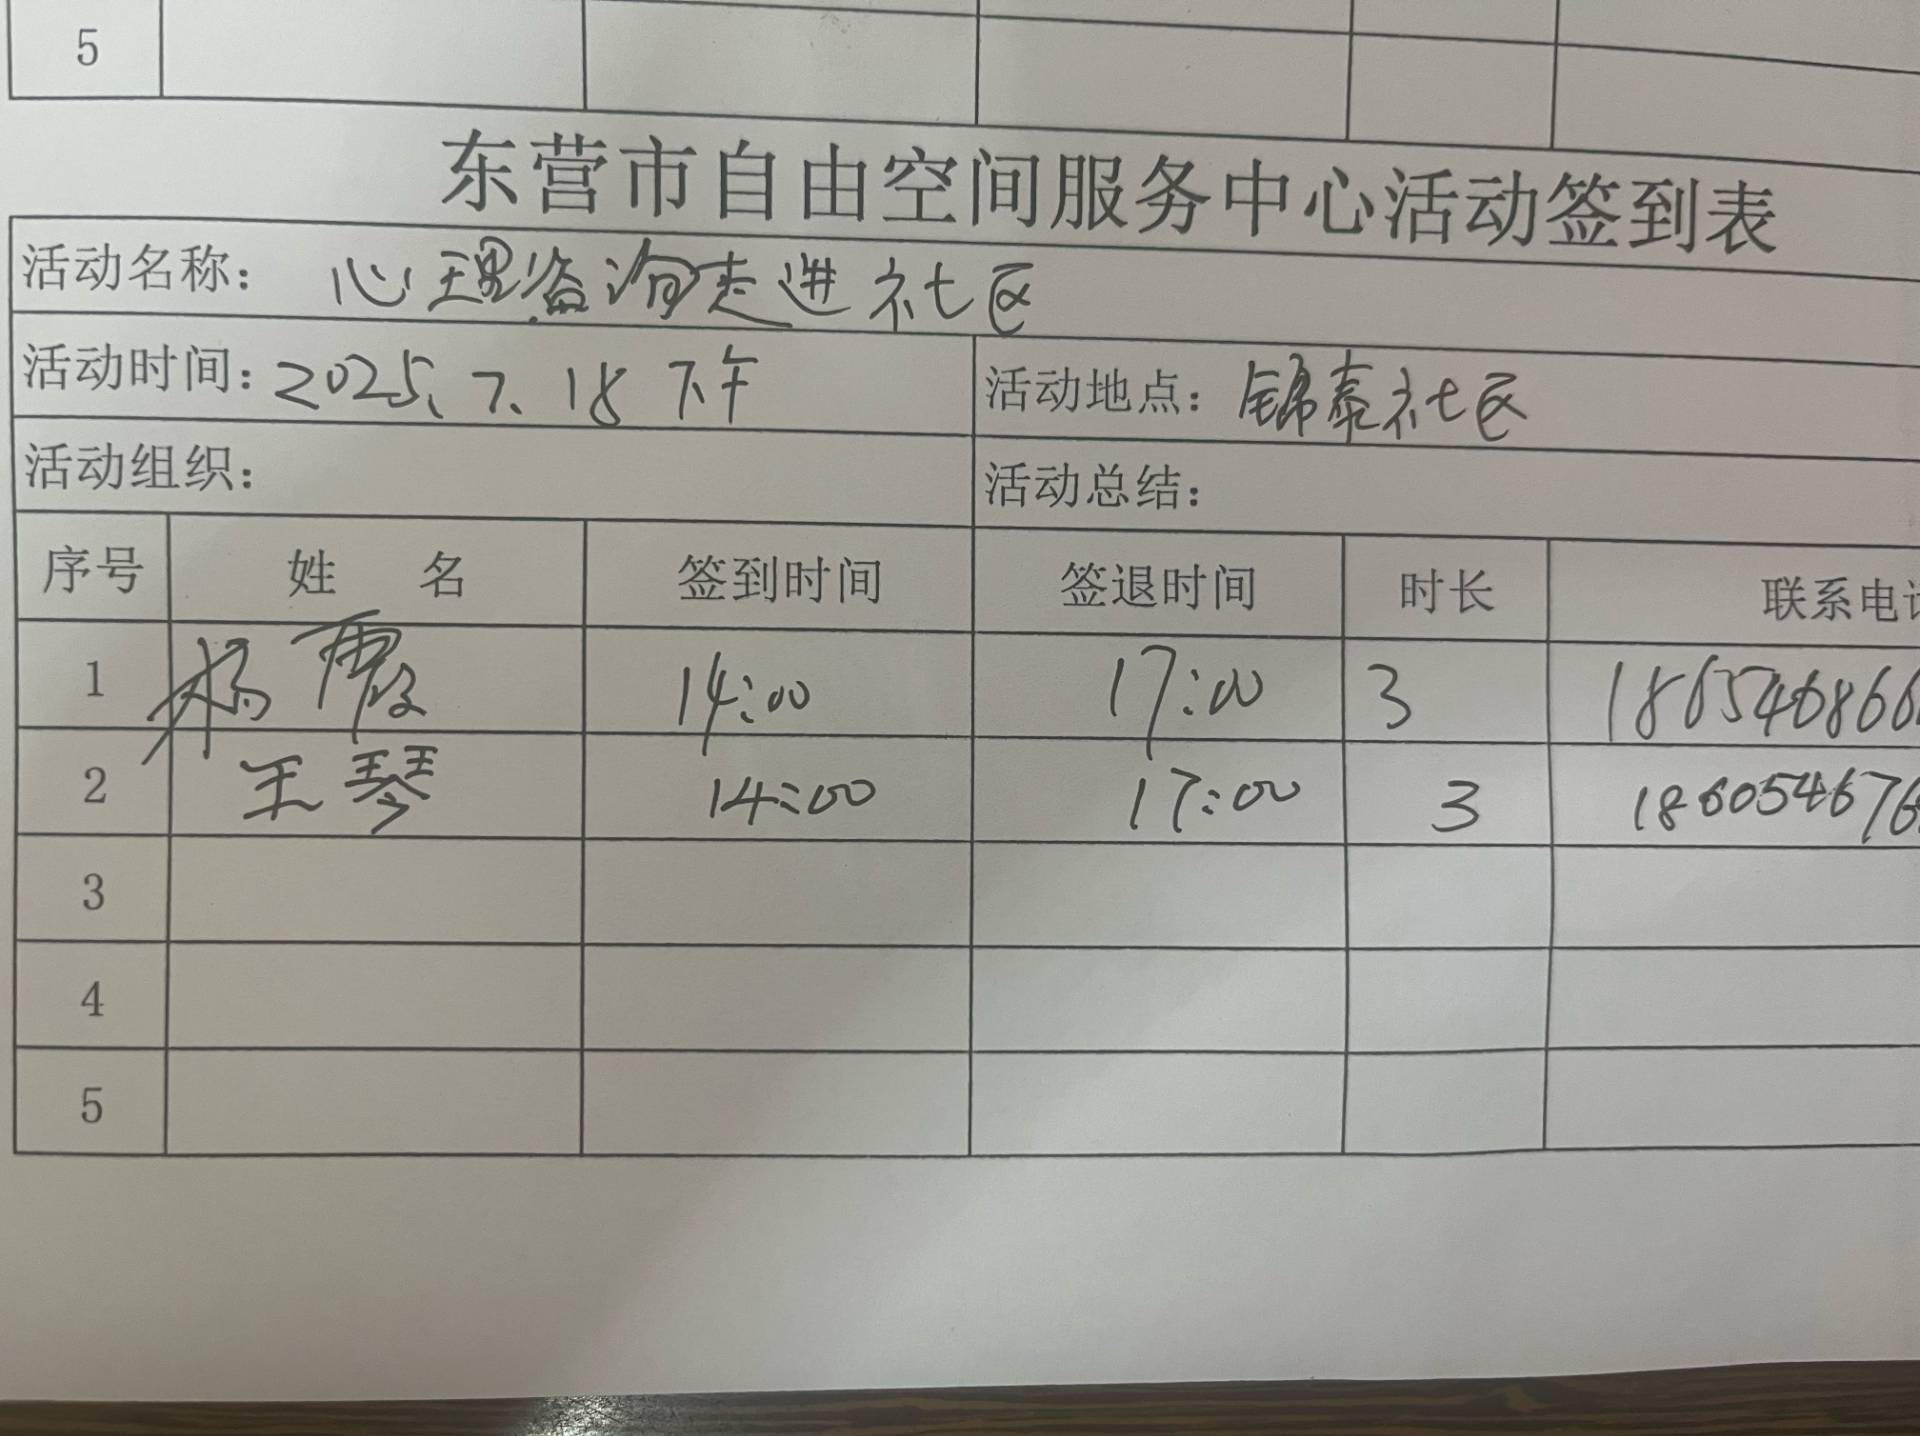 5
东营市自由空间服务中心活动签到表
活动名称： 心理咨询走进社区
活动时间：2025.7.18 下午 活动地点：锦泰社区
活动组织： 活动总结：
序号 姓 名 签到时间 签退时间 时长 联系电
1 杨霞 14:00 17:00 3 186546866
2 王琴 14:00 17:00 3 186054676
3
4
5